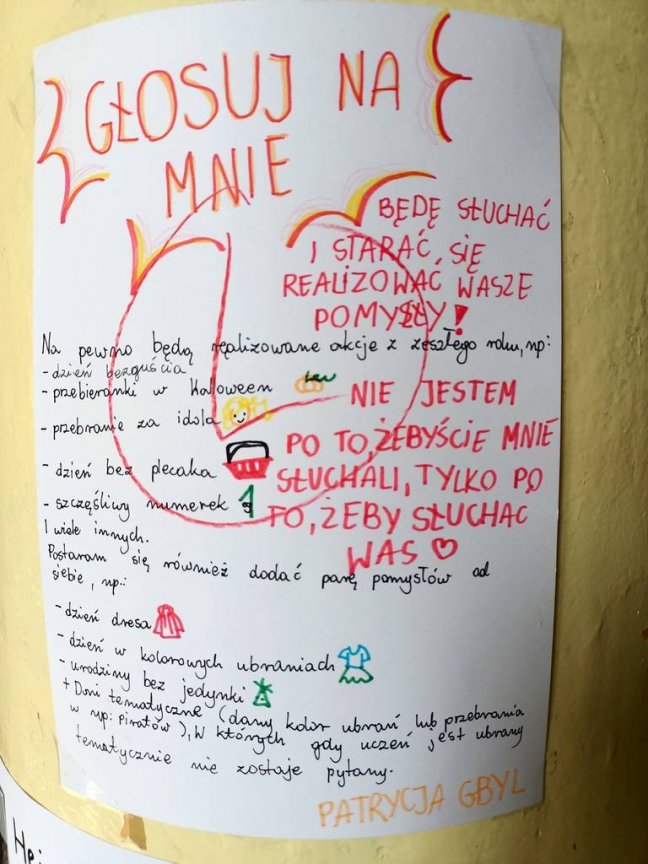 GŁOSUJ NA
MNIE
BĘDĘ SŁUCHAĆ
I STARAĆ SIĘ
REALIZOWAĆ WASZE
POMYSŁY!
Na pewno będą realizowane akcje z zeszłego roku, np:
- dzień bezguścia
- przebieranki w Halloween
- przebranie za idola
- dzień bez plecaka
- szczęśliwy numerek
I wiele innych.
NIE JESTEM
PO TO, ŻEBYŚCIE MNIE
SŁUCHALI, TYLKO PO
TO, ŻEBY SŁUCHAĆ
WAS ♡
Postaram się również dodać parę pomysłów od
siebie, np.:
- dzień dresa
- dzień w kolorowych ubraniach
- urodziny bez jedynki
+ Dni tematyczne (dany kolor ubrań lub przebrania
w np: piratów), w których gdy uczeń jest ubrany
tematycznie nie zostaje pytany.
PATRYCJA GBYL